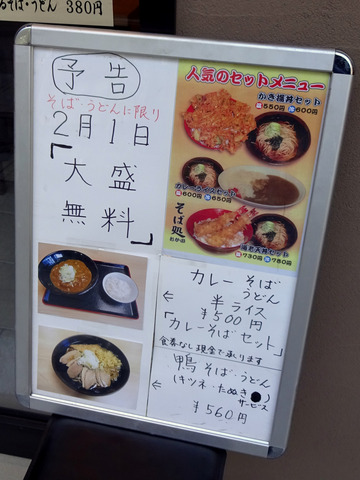 そば・うどん 380円
予告
そば・うどんに限り
2月1日
「大盛
無料」
人気のセットメニュー
かき揚丼セット
550円 600円
カレーライスセット
600円 650円
そば処
海老天丼セット
730円 780円
カレーそば
うどん
← 半ライス
¥500円
「カレーそばセット」
食券なし現金で承ります
鴨そば・うどん
← (キツネ・たぬき )
サービス
¥560円